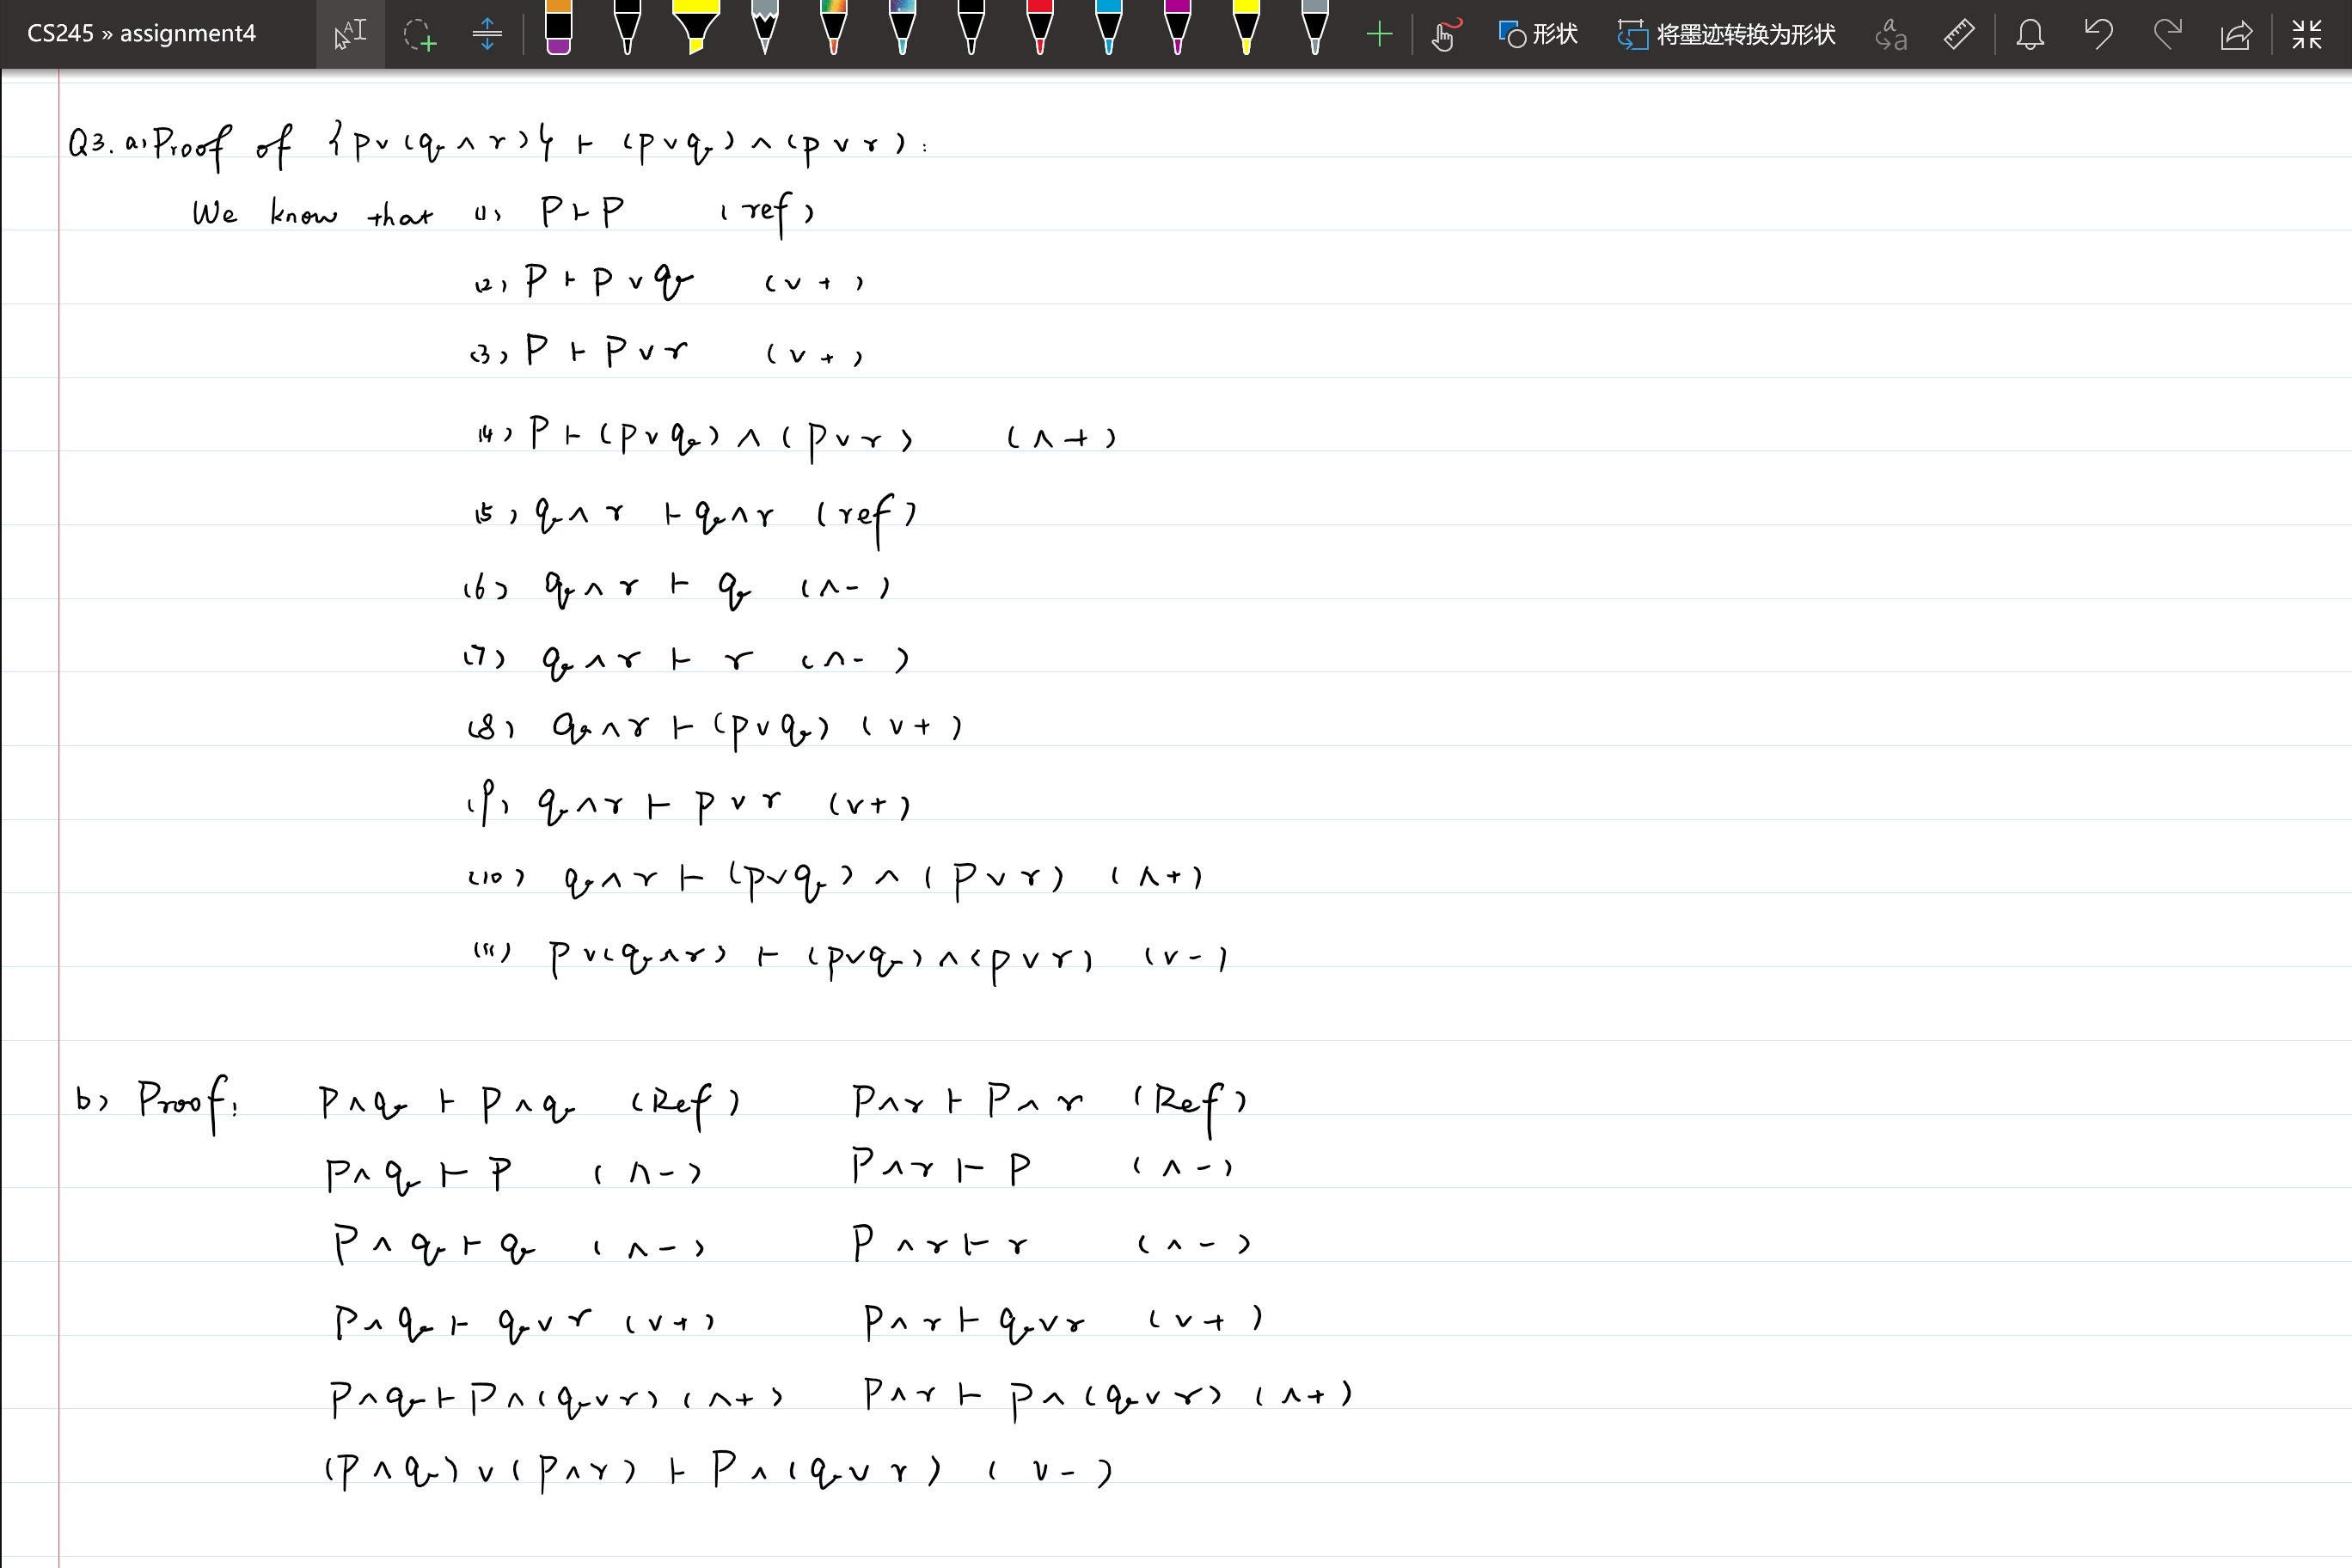 CS245 » assignment4 形状 将墨迹转换为形状
Q3. a) Proof of {p∨(q∧r)} ⊢ (p∨q)∧(p∨r):
We know that (1) P⊢P (ref)
(2) P⊢P∨q (∨+)
(3) P⊢P∨r (∨+)
(4) P⊢(p∨q)∧(p∨r) (∧+)
(5) q∧r ⊢q∧r (ref)
(6) q∧r ⊢ q (∧-)
(7) q∧r ⊢ r (∧-)
(8) q∧r ⊢ (p∨q) (∨+)
(9) q∧r ⊢ p∨r (∨+)
(10) q∧r ⊢ (p∨q)∧(p∨r) (∧+)
(11) p∨(q∧r) ⊢ (p∨q)∧(p∨r) (∨-)
b) Proof: P∧q ⊢ P∧q (Ref) P∧r ⊢ P∧r (Ref)
P∧q ⊢ P (∧-) P∧r ⊢ P (∧-)
P∧q ⊢ q (∧-) P∧r ⊢ r (∧-)
P∧q ⊢ q∨r (∨+) P∧r ⊢ q∨r (∨+)
P∧q ⊢ P∧(q∨r) (∧+) P∧r ⊢ p∧(q∨r) (∧+)
(P∧q)∨(P∧r) ⊢ P∧(q∨r) (∨-)